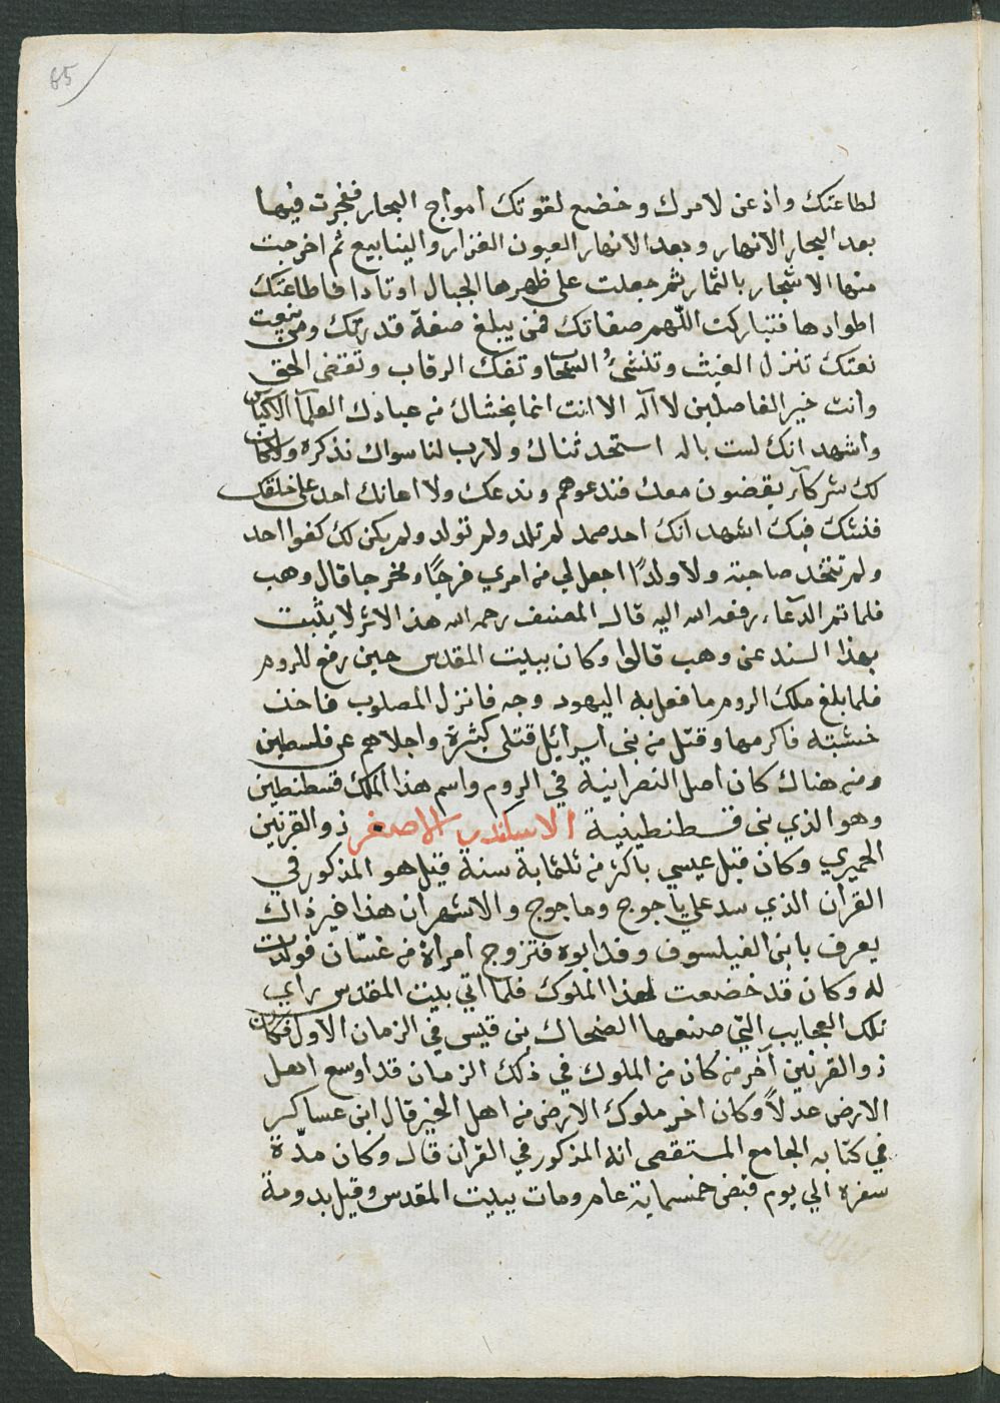 65
لطاعتك واذعن لامرك وخضع لقوتك امواج البحار ففجرت فيها
بعد البحار الانهار وبعد الانهار العيون الغزار والينابيع ثم اخرجت
منها الاشجار بالثمار ثم جعلت على ظهرها الجبال اوتادا فاطاعتك
اطوادها فتباركت اللهم صفاتك فمن يبلغ صفة قدرتك ومن ينعت
نعتك تنزل الغيث وتنشئ السحاب وتفك الرقاب وتقضى الحق
وانت خير الفاصلين لا اله الا انت انما يخشاك من عبادك العلمآ الاكياس
واشهد انك لست باله استحدثناك ولا رب لنا سواك نذكره ولا كان
لك شركآء يقضون معك فندعوهم وندعك ولا اعانك احد على خلقك
فنشك فيك اشهد انك احد صمد لم تلد ولم تولد ولم يكن لك كفوا احد
ولم تتخذ صاحبة ولا ولدًا اجعل لي من امري فرجًا ومخرجا قال وهب
فلما تم الدعآء رفعه الله اليه قال المصنف رحمه الله هذ الاثر لا يثبت
بهذا السند عن وهب قالوا وكان ببيت المقدس حين رفع للروم
فلما بلغ ملك الروم ما فعل به اليهود وجه فانزل المصلوب فاخذ
خشبته فاكرمها وقتل من بنى اسرائيل قتلى كثيرة واجلاهم عن فلسطين
ومن هناك كان اصل النصرانية في الروم واسم هذا الملك قسطنطين
وهو الذي بنى قسطنطينية الاسكندر الاصغر ذو القرنين
الحميري وكان قبل عيسي باكثر من ثلثماية سنة قيل هو المذكور في
القران الذي سد على ياجوج وماجوج والاشهر ان هذا غير ذاك
يعرف بابن الفيلسوف وفد ابوه فتزوج امراة من غسّان فولدت
له وكان قد خضعت لهذا الملوك فلما اتي بيت المقدس راي
تلك العجايب التي صنعها الضحاك بن قيس في الزمان الاول فكان
ذو القرنين آخر من كان من الملوك في ذلك الزمان قد اوسع اهل
الارض عدلاً وكان اخر ملوك الارض من اهل الخير قال ابن عساكر
في كتابه الجامع المستقصى انه المذكور في القران قال وكان مدّة
سفره الي يوم قبض خمسماية عام ومات ببيت المقدس وقيل بدومة